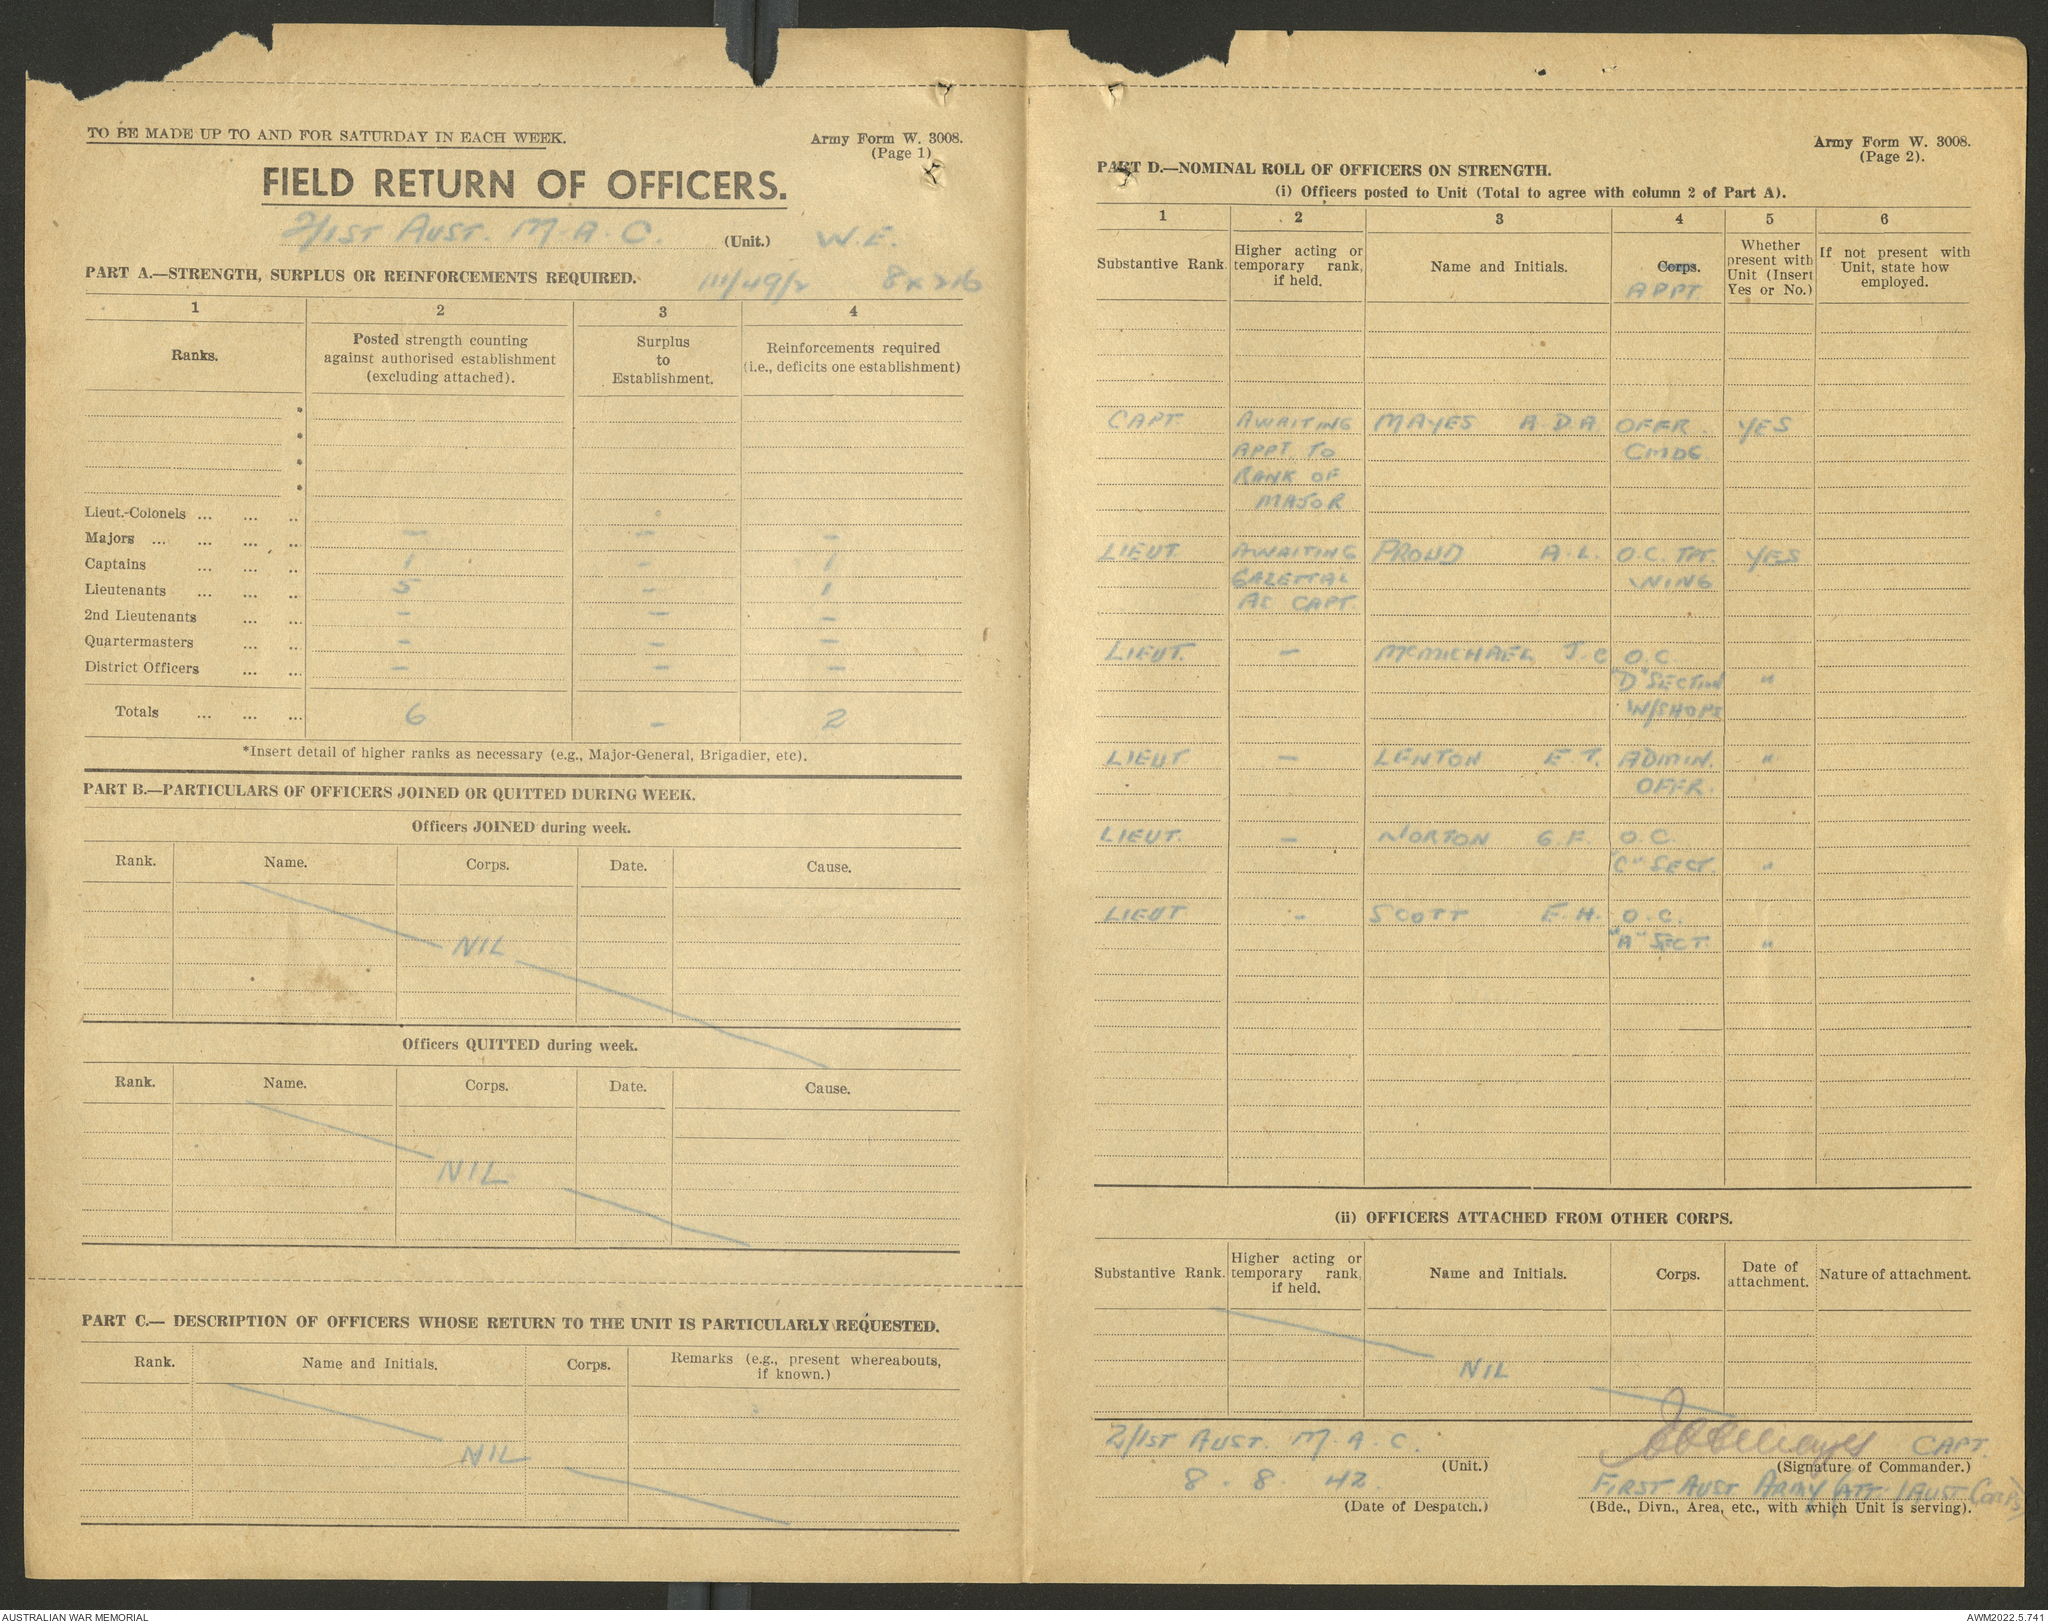 TO BE MADE UP TO AND FOR SATURDAY IN EACH WEEK.
Army Form W. 3008.
(Page 1)
FIELD RETURN OF OFFICERS.
2/1ST AUST. M.A.C. (Unit.) W.E.
PART A.—STRENGTH, SURPLUS OR REINFORCEMENTS REQUIRED. 111/49/2 8 x 216
1 2 3 4
Ranks.
Posted strength counting
against authorised establishment
(excluding attached).
Surplus
to
Establishment.
Reinforcements required
(i.e., deficits one establishment)
*
*
*
*
Lieut.-Colonels ... ... ..
Majors ... ... ... .. — — —
Captains ... ... .. 1 - 1
Lieutenants ... ... .. 5 - 1
2nd Lieutenants ... ... — — —
Quartermasters ... ... — — —
District Officers ... ... — — —
Totals ... ... ... 6 - 2
*Insert detail of higher ranks as necessary (e.g., Major-General, Brigadier, etc).
PART B.—PARTICULARS OF OFFICERS JOINED OR QUITTED DURING WEEK.
Officers JOINED during week.
Rank. Name. Corps. Date. Cause.
NIL
Officers QUITTED during week.
Rank. Name. Corps. Date. Cause.
NIL
PART C.— DESCRIPTION OF OFFICERS WHOSE RETURN TO THE UNIT IS PARTICULARLY REQUESTED.
Rank. Name and Initials. Corps. Remarks (e.g., present whereabouts,
if known.)
NIL
Army Form W. 3008.
(Page 2).
PART D.—NOMINAL ROLL OF OFFICERS ON STRENGTH.
(i) Officers posted to Unit (Total to agree with column 2 of Part A).
1 2 3 4 5 6
Substantive Rank.
Higher acting or
temporary rank,
if held.
Name and Initials.
Corps.
APPT
Whether
present with
Unit (Insert
Yes or No.)
If not present with
Unit, state how
employed.
CAPT. AWAITING MAYES A.D.A. OFFR. YES
APPT. TO CMDG
RANK OF
MAJOR
LIEUT. AWAITING PROUD A.L. O.C. TPT. YES
GAZETTAL WING
AS CAPT.
LIEUT. — McMICHAEL J.C O.C.
"D" SECTION "
W/SHOPS
LIEUT — LENTON E.T. ADMIN. "
OFFR.
LIEUT. — NORTON G.F. O.C.
"C" SECT. "
LIEUT - SCOTT E.H. O.C.
"A" SECT. "
(ii) OFFICERS ATTACHED FROM OTHER CORPS.
Substantive Rank.
Higher acting or
temporary rank,
if held.
Name and Initials.
Corps.
Date of
attachment.
Nature of attachment.
NIL
2/1ST AUST. M.A.C.
(Unit.)
8 . 8 . 42.
(Date of Despatch.)
Mayes CAPT.
(Signature of Commander.)
FIRST AUST ARMY (ATT. 1 AUST CORPS)
(Bde., Divn., Area, etc., with which Unit is serving).
AUSTRALIAN WAR MEMORIAL
AWM2022.5.741